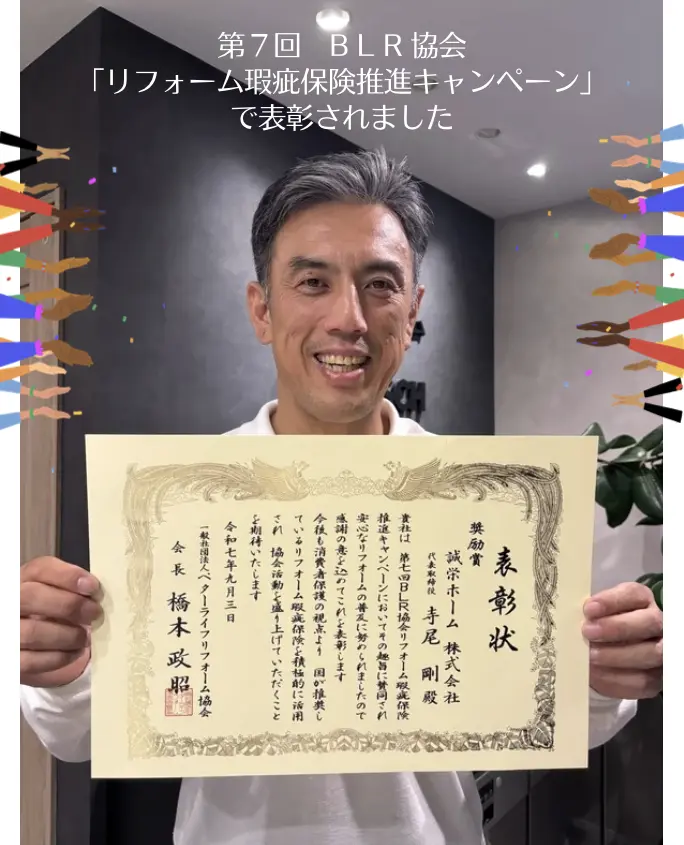 第７回　ＢＬＲ協会
「リフォーム瑕疵保険推進キャンペーン」
で表彰されました
表彰状
奨励賞
誠栄ホーム 株式会社
代表取締役 寺尾 剛 殿
貴社は 第七回BLR協会リフォーム瑕疵保険
推進キャンペーンにおいてその趣旨に賛同され
安心なリフォームの普及に努められましたので
感謝の意を込めてこれを表彰します
今後も消費者保護の視点より 国が推奨し
ているリフォーム瑕疵保険を積極的に活用
され 協会活動を盛り上げていただくこと
を期待いたします
令和七年九月三日
一般社団法人ベターライフリフォーム協会
会長 橋本 政昭